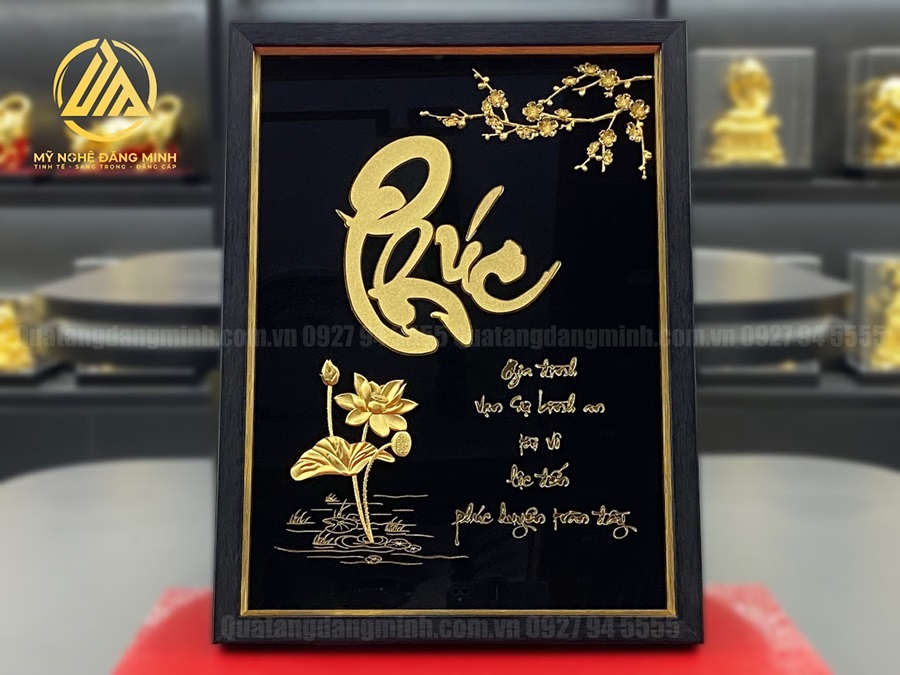 MỸ NGHỆ ĐĂNG MINH
TINH TẾ - SANG TRỌNG - ĐẲNG CẤP
Phúc
Gia đình
Vạn sự bình an
Lộc tiến
phúc
Quatangdangminh.com.vn 0927 94 5555
Quatangdangminh.com.vn 0927 94 5555
Quatangdangminh.com.vn 0927 94 5555